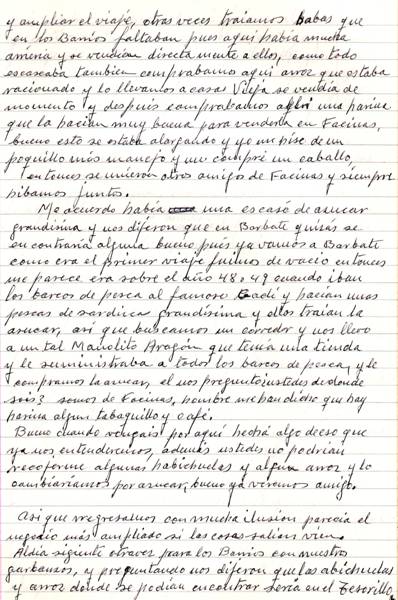 y ampliar el viaje, otras veces traiamos habas que
en los Barrios faltaban pues aqui había mucha
y se vendian directa mente a ellos, como todo
escaseaba tambien comprabamos aqui arroz que estaba
racionado y lo llevamos a casas Vieja se vendia de
momento y después comprabamos alli una harina
que la hacian muy buena para venderla en Facinas,
bueno esto se estaba alargando y yo me hise de un
poquillo más manejo y me compré un caballo,
entonces se unieron otros amigos de Facinas y siempre
hibamos juntos.
Me acuerdo había una escasó de asucar
grandisima y nos diferon que en Barbate quizás se
en contraria alguna bueno pués ya vamos a Barbate
como era el primer viaje fuimos de vacio entonces
me parece era sobre el año 48 o 49 cuando iban
los barcos de pesca al famoso Cadi y hacian unas
pescas de sardina grandisima y ellos traian la
asucar, asi que buscamos un corredor y nos llevo
a un tal Manolito Aragón que tenia una tienda
y le suministraba a todos los barcos de pesca, y le
compramos la asucar, el nos pregunto ustedes de donde
sois? somos de Facinas, hombre me han dicho que hay
harina algun tabaquillo y café.
Bueno cuando vengais por aqui hechá algo de eso que
ya nos entenderemos, además ustedes no podrian
recoferme algunas habichuelas y algun arroz y lo
cambiariamos por asucar, bueno ya veremos amigo.
Asi que regresamos con mucha ilusion parecia el
negocio más ampliado si las cosas salian vien.
Al dia sigiente otravez para los Barrios con nuestros
garbanzos, y preguntando nos diferon que las abichuelas
y arroz donde se podian encontrar seria en el Tesorillo